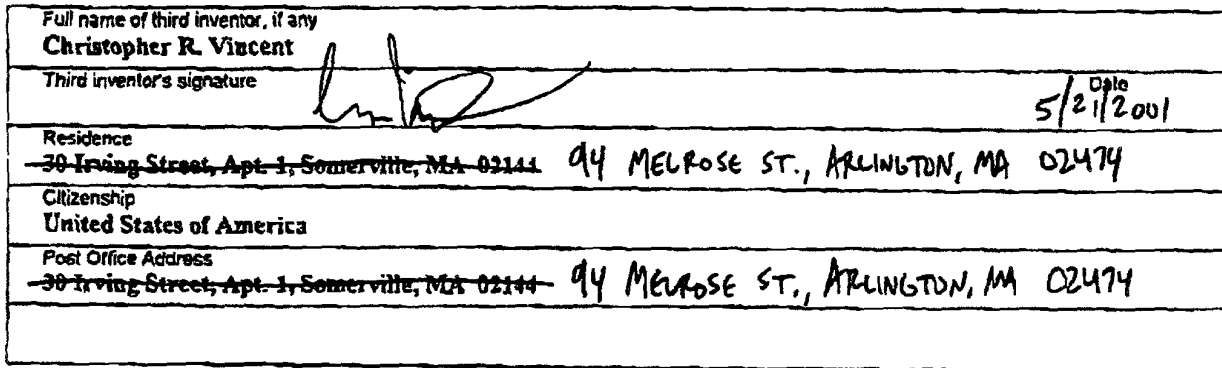 Full name of third inventor, if any
Christopher R. Vincent
Third inventor's signature
Date
5/21/2001
Residence
30 Irving Street, Apt. 1, Somerville, MA 02144 94 MELROSE ST., ARLINGTON, MA 02474
Citizenship
United States of America
Post Office Address
30 Irving Street, Apt. 1, Somerville, MA 02144 94 MELROSE ST., ARLINGTON, MA 02474